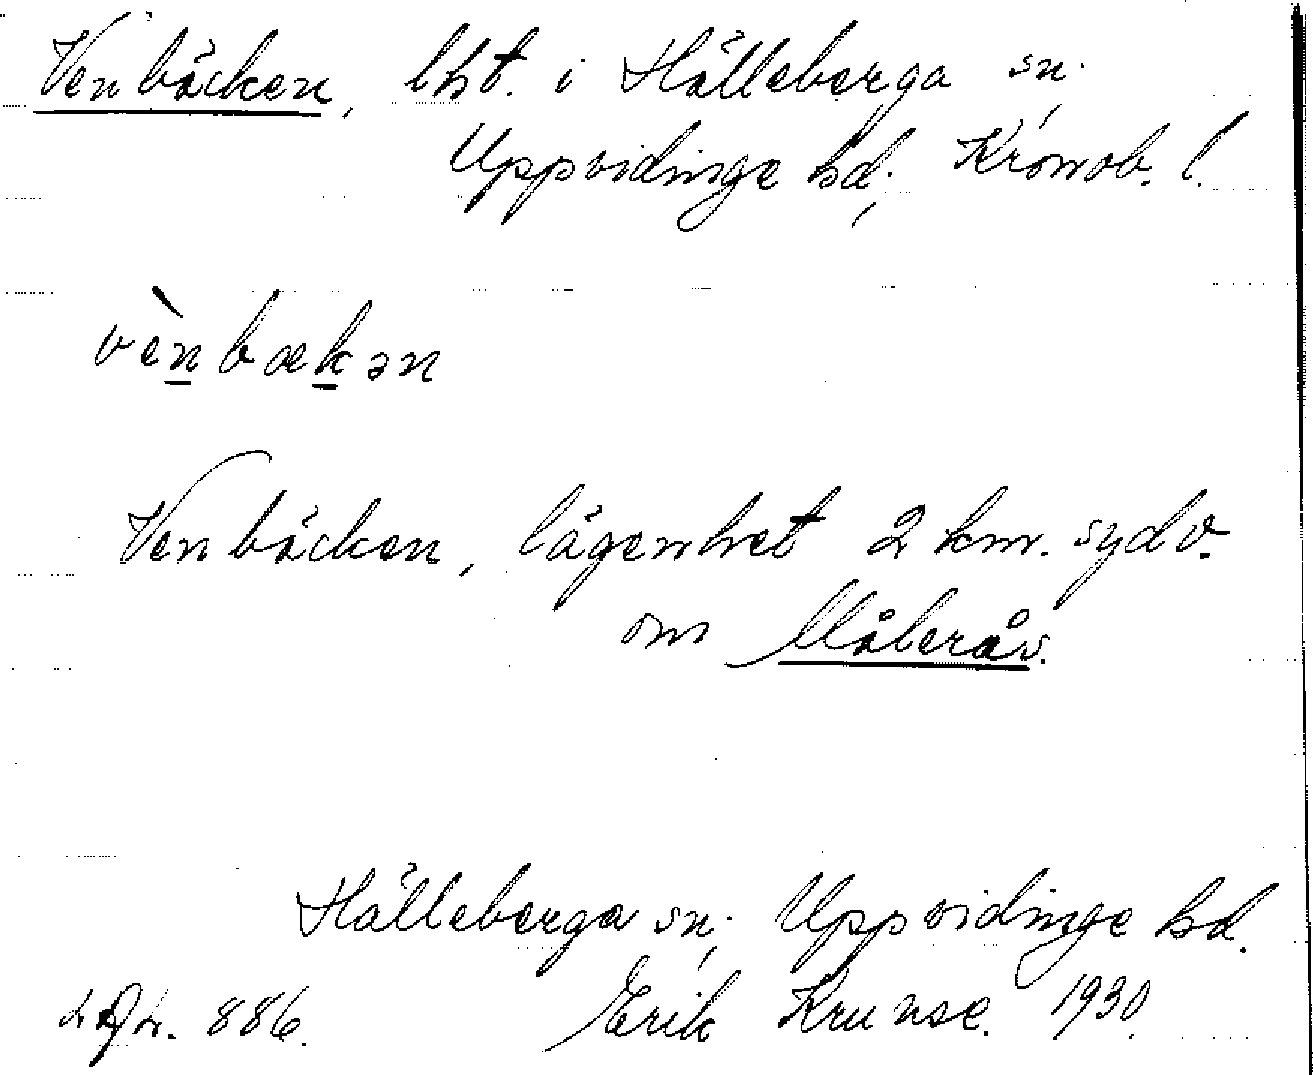 Venbäcken, lht. i Hälleberga sn;
Uppvidinge hd; Kronob. l.
vènbækən
Venbäcken, lägenhet 2 km. sydv.
om Måleräs.
Hälleberga sn; Uppvidinge hd.
886. Erik Krunse. 1930.